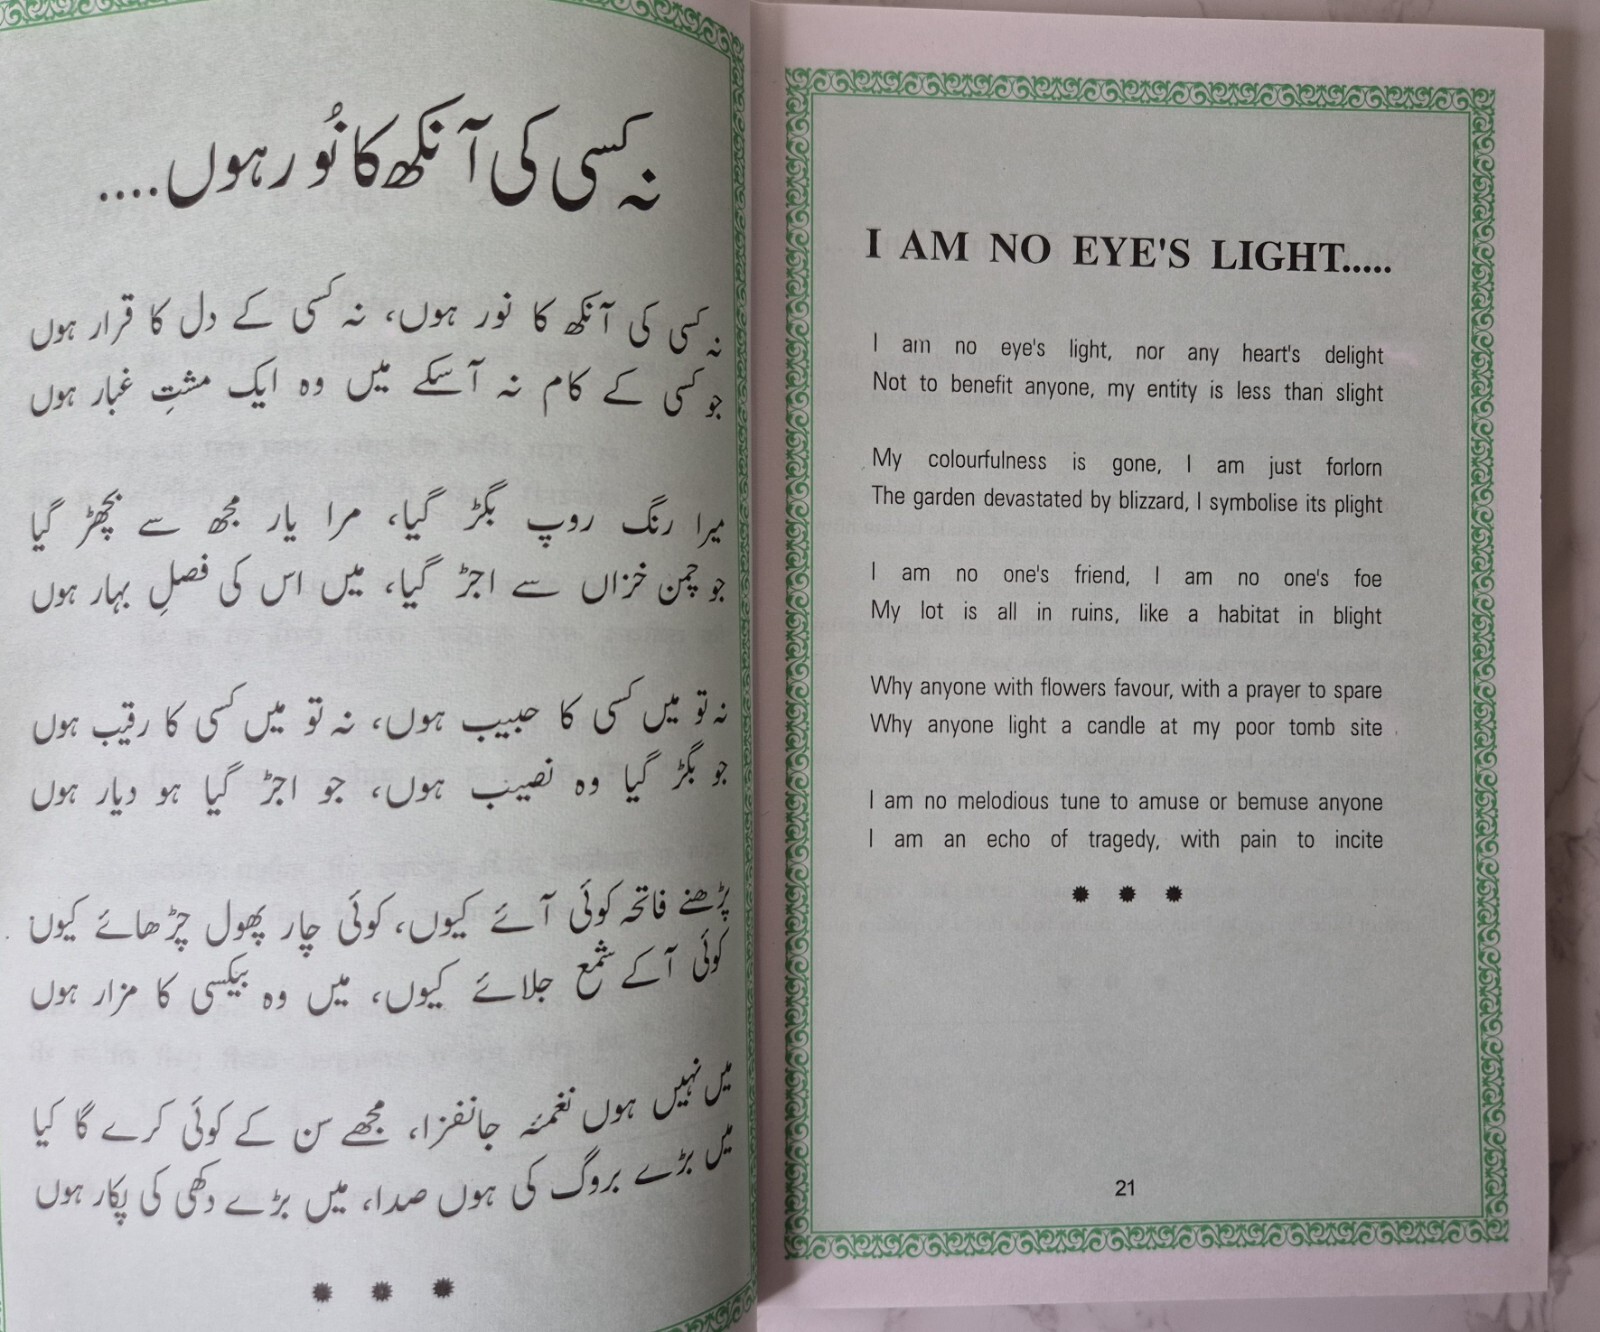 نہ کسی کی آنکھ کا نُور ہوں....
نہ کسی کی آنکھ کا نور ہوں، نہ کسی کے دل کا قرار ہوں
جو کسی کے کام نہ آسکے میں وہ ایک مشتِ غبار ہوں
میرا رنگ روپ بگڑ گیا، مرا یار مجھ سے بچھڑ گیا
جو چمن خزاں سے اجڑ گیا، میں اس کی فصلِ بہار ہوں
نہ تو میں کسی کا حبیب ہوں، نہ تو میں کسی کا رقیب ہوں
جو بگڑ گیا وہ نصیب ہوں، جو اجڑ گیا ہو دیار ہوں
پڑھنے فاتحہ کوئی آئے کیوں، کوئی چار پھول چڑھائے کیوں
کوئی آکے شمع جلائے کیوں، میں وہ بیکسی کا مزار ہوں
میں نہیں ہوں نغمۂ جانفزا، مجھے سن کے کوئی کرے گا کیا
میں بڑے بروگ کی ہوں صدا، میں بڑے دکھی کی پکار ہوں
I AM NO EYE'S LIGHT.....
I am no eye's light, nor any heart's delight
Not to benefit anyone, my entity is less than slight
My colourfulness is gone, I am just forlorn
The garden devastated by blizzard, I symbolise its plight
I am no one's friend, I am no one's foe
My lot is all in ruins, like a habitat in blight
Why anyone with flowers favour, with a prayer to spare
Why anyone light a candle at my poor tomb site
I am no melodious tune to amuse or bemuse anyone
I am an echo of tragedy, with pain to incite
21